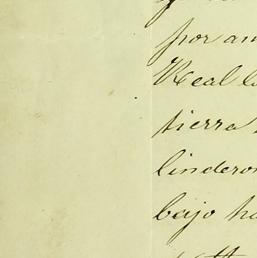 por am
Real lo
tierra
linderos
bajo ha